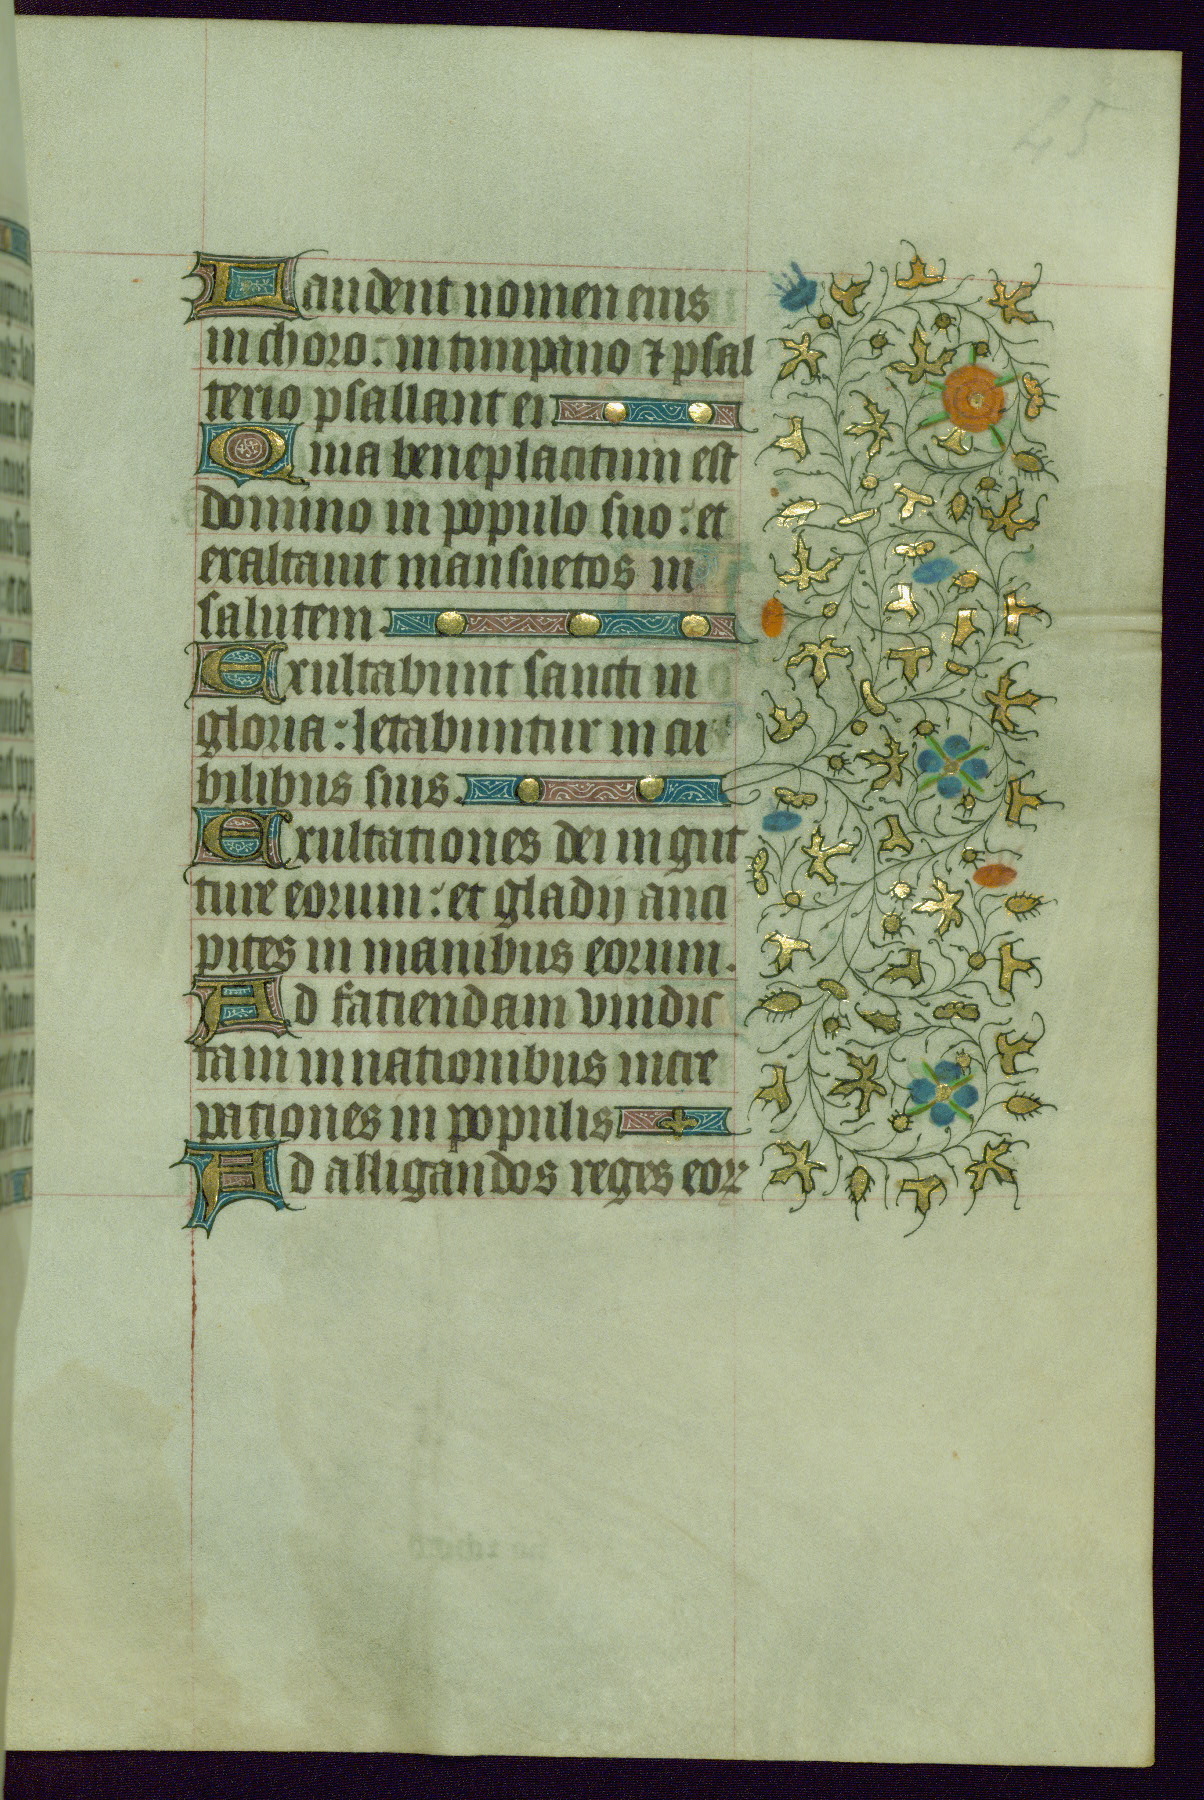 45
Laudent nomen eius
in choro: in timpano ⁊ psal
terio psallant ei
Quia beneplacitum est
domino in populo suo: et
exaltauit mansuetos in
salutem.
Exultabunt sancti in
gloria: letabuntur in cu
bilibus suis.
Exultationes dei in gut
ture eorum: et gladij anci
pites in manibus eorum.
Ad faciendam vindic
tam in nationibus incre
pationes in populis
Ad alligandos reges eoꝝ